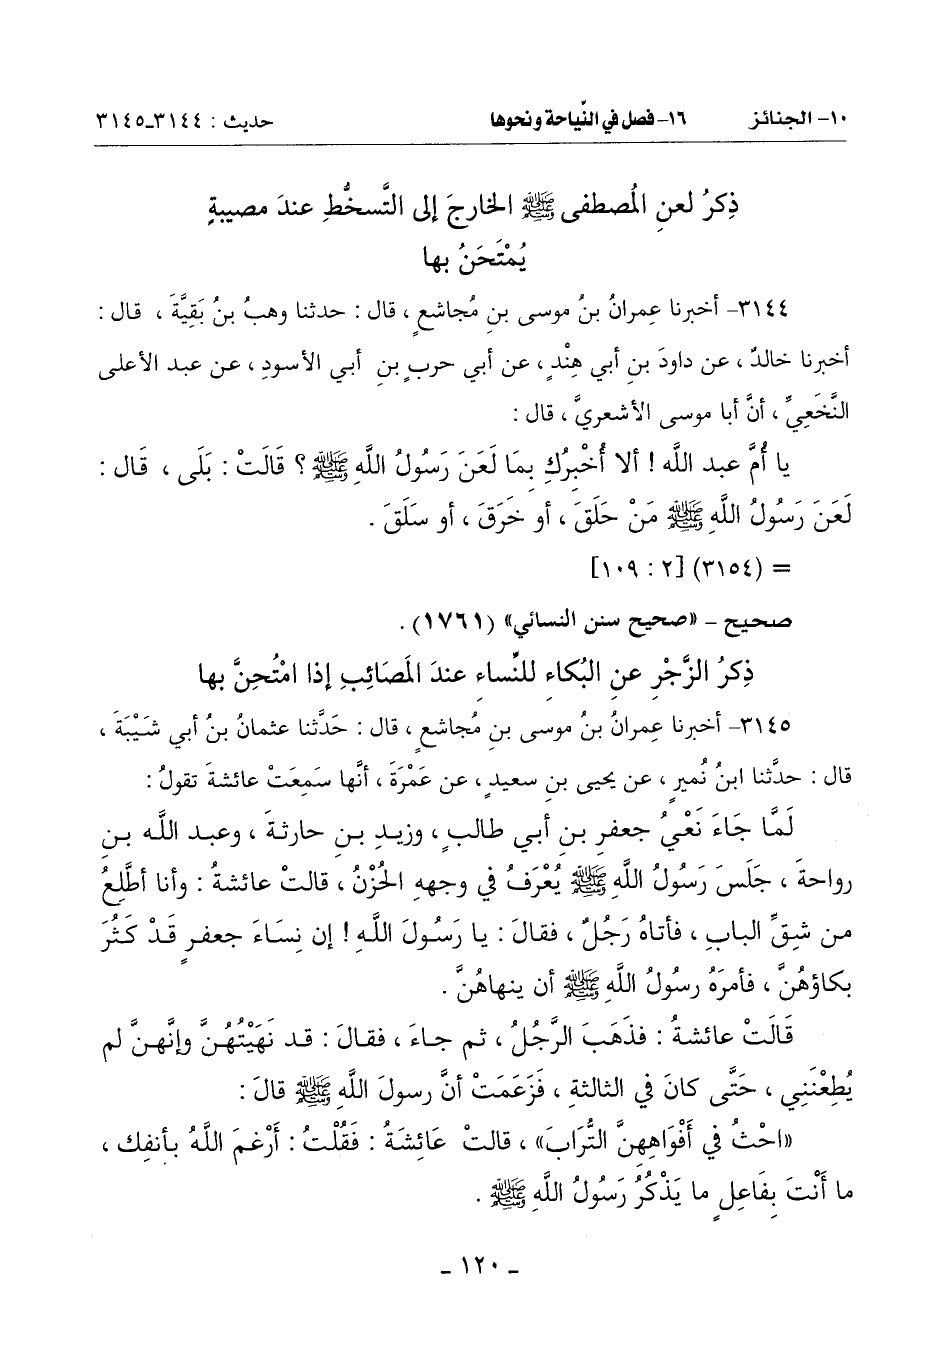 ١٠- الجنائز ١٦- فصل في النِّياحة ونحوها حديث : ٣١٤٤-٣١٤٥
ذِكرُ لعنِ المُصطفى ﷺ الخارجَ إلى التَّسخُّطِ عندَ مصيبةٍ
يُمْتَحَنُ بها
٣١٤٤- أخبرنا عِمرانُ بنُ موسى بنِ مُجاشعٍ ، قال : حدثنا وهبُ بنُ بَقِيَّةَ ، قال :
أخبرنا خالدٌ ، عن داودَ بنِ أبي هِنْدٍ ، عن أبي حربِ بنِ أبي الأسودِ ، عن عبد الأعلى
النَّخَعِيِّ ، أنَّ أبا موسى الأشعريَّ ، قال :
يا أُمَّ عبد اللَّه ! ألا أُخْبِرُكِ بِمَا لَعَنَ رَسُولُ اللَّهِ ﷺ ؟ قَالَتْ : بَلَى ، قَال :
لَعَنَ رَسُولُ اللَّهِ ﷺ مَنْ حَلَقَ ، أو خَرَقَ ، أو سلَقَ .
= (٣١٥٤) [٢ : ١٠٩]
صحيح – «صحيح سنن النسائي» (١٧٦١) .
ذِكرُ الزَّجْرِ عنِ البُكاءِ للنِّساءِ عندَ المَصَائِبِ إذا امْتُحِنَّ بها
٣١٤٥- أخبرنا عِمرانُ بنُ موسى بن مُجاشعٍ ، قال : حَدَّثنا عثمانُ بنُ أبي شَيْبَةَ ،
قال : حدَّثنا ابنُ نُميرٍ ، عن يحيى بنِ سعيدٍ ، عن عَمْرَةَ ، أنَّها سَمِعَتْ عائشةَ تقولُ :
لَمَّا جَاءَ نَعْيُ جعفرِ بنِ أبي طالبٍ ، وزيدِ بنِ حارثةَ ، وعبد اللَّه بنِ
رواحةَ ، جَلَسَ رَسُولُ اللَّهِ ﷺ يُعْرَفُ في وجههِ الحُزْنُ ، قالتْ عائشةُ : وأنا أطَّلِعُ
من شِقِّ البابِ ، فأتاهُ رَجُلٌ ، فقالَ : يا رَسُولَ اللَّهِ ! إن نِسَاءَ جعفرٍ قَدْ كَثُرَ
بكاؤهُنَّ ، فأمرَهُ رسُولُ اللَّهِ ﷺ أن ينهاهُنَّ .
قَالَتْ عائشةُ : فذَهَبَ الرَّجُلُ ، ثم جاءَ ، فقالَ : قد نَهَيْتُهُنَّ وإنَّهنَّ لم
يُطِعْنَنِي ، حَتَّى كانَ في الثالثةِ ، فَزَعَمَتْ أنَّ رسولَ اللَّهِ ﷺ قالَ :
«احْثُ في أفْوَاهِهِنَّ التُّرَابَ» ، قالتْ عَائِشَةُ : فَقُلْتُ : أرْغمَ اللَّهُ بأنفِك ،
ما أنْتَ بِفَاعِلٍ ما يَذْكُرُ رَسُولُ اللَّهِ ﷺ .
– ١٢٠ –